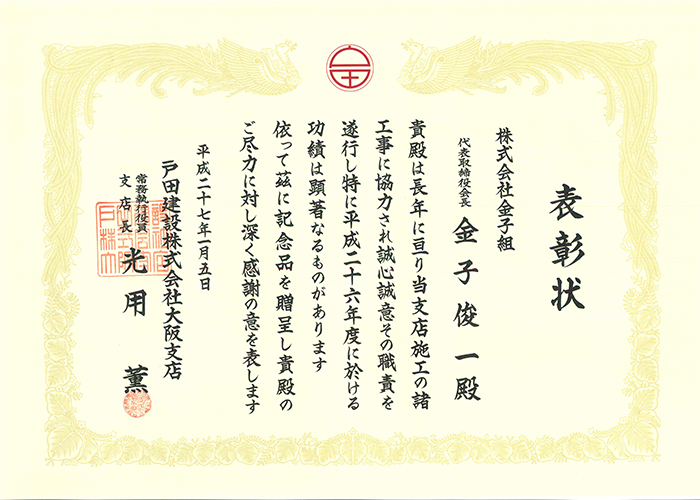 表彰状
株式会社金子組
代表取締役会長 金子俊一殿
貴殿は長年に亘り当支店施工の諸
工事に協力され誠心誠意その職責を
遂行し特に平成二十六年度に於ける
功績は顕著なるものがあります
依って茲に記念品を贈呈し貴殿の
ご尽力に対し深く感謝の意を表します
平成二十七年一月五日
戸田建設株式会社大阪支店
常務執行役員
支店長 光用 薫